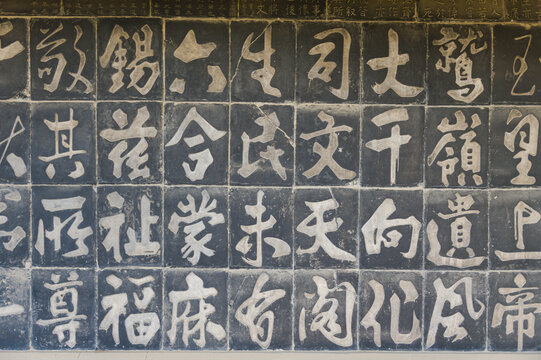 玉皇上帝
鷲嶺遺風
大千向化
司文天閣
生民未有
六合蒙庥
錫茲祉福
敬其所尊